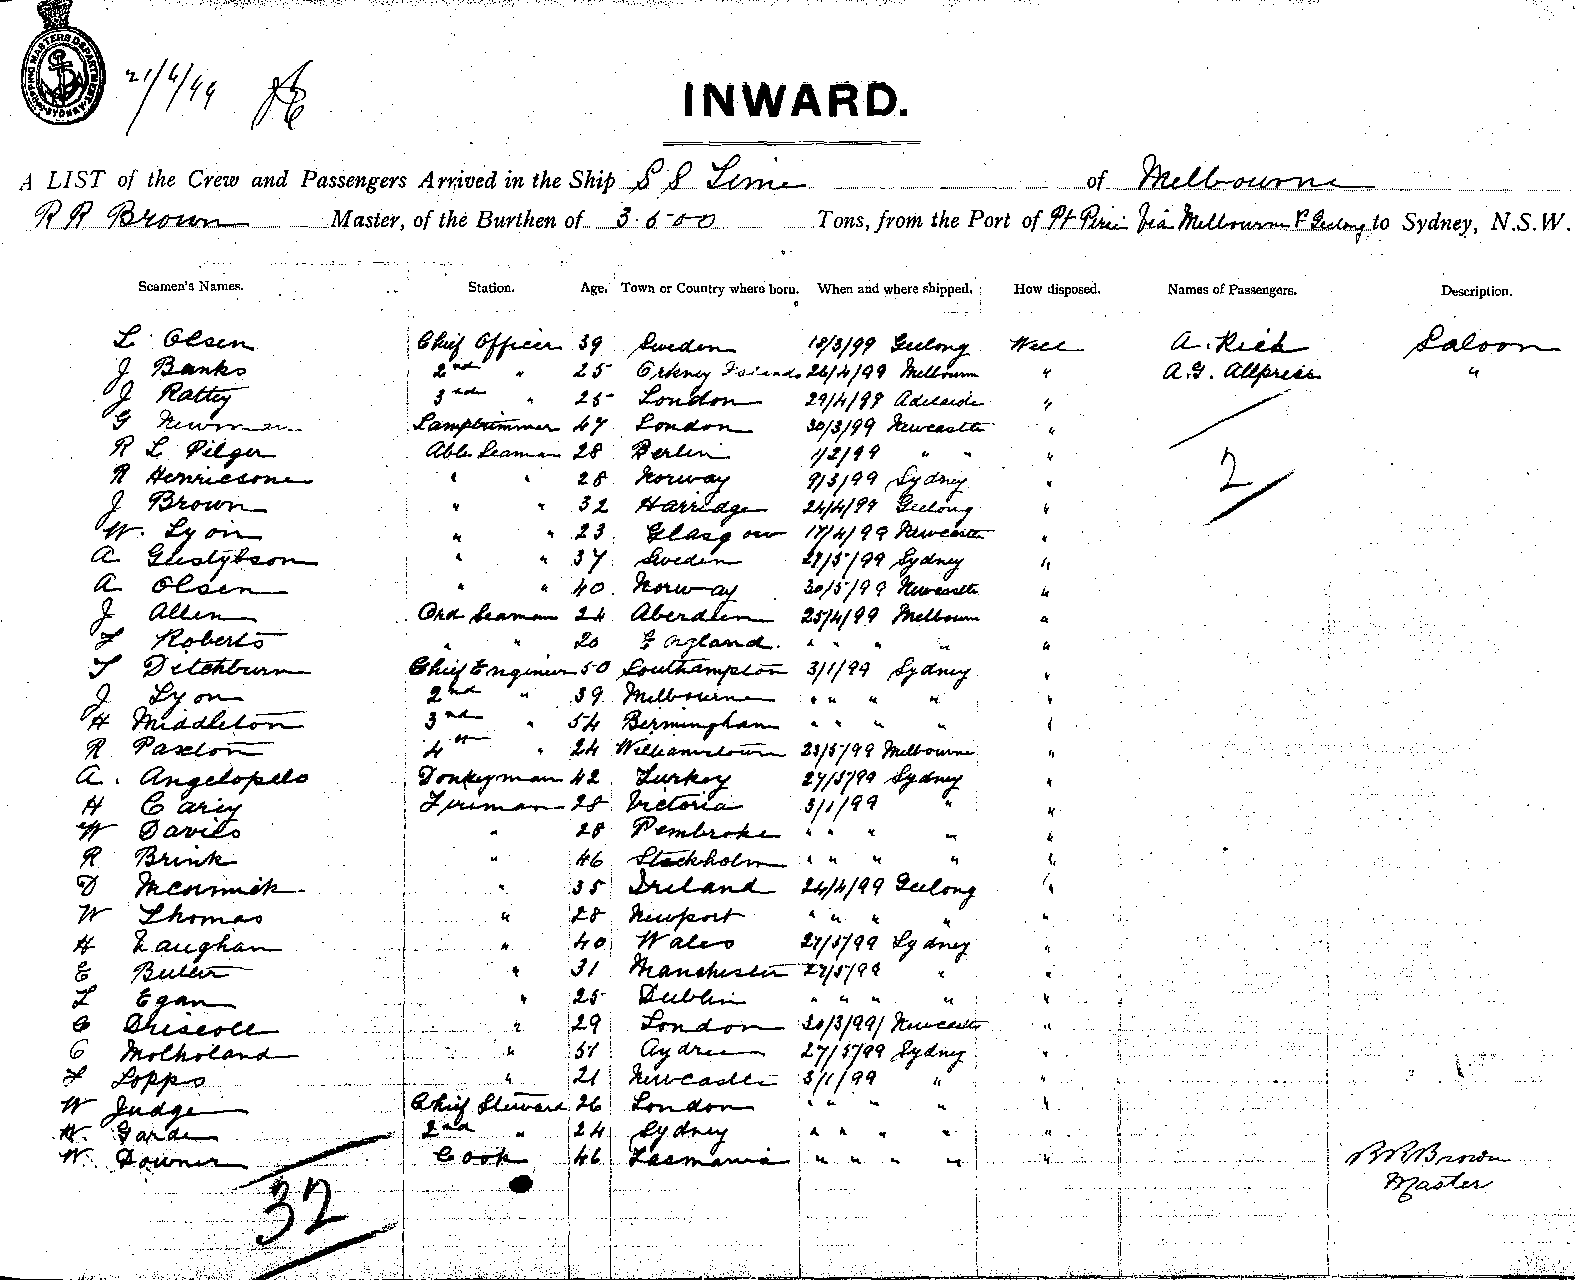 SHIPPING MASTERS DEPARTMENT SYDNEY
21/6/99
INWARD.
A LIST of the Crew and Passengers Arrived in the Ship S S Time of Melbourne
R R Brown Master, of the Burthen of Tons, from the Port of Pt Pirie Via Melbourne & Geelong to Sydney, N.S.W.
Seamen's Names. Station. Age. Town or Country where born. When and where shipped. How disposed. Names of Passengers. Description.
L Olsen Chief Officer 39 Sweden 18/3/99 Geelong Well A. Rich Saloon
J Banks 2nd " 25 Orkney Islands 26/4/99 Melbourn " A. G. Allpress "
J Rattey 3rd " 25 London 29/4/98 Adelaide "
G Newman Lamptrimmer 47 London 30/3/99 Newcastle "
R L Pilger Able Seaman 28 Berlin 1/2/99 " " "
R Henricsone " " 28 Norway 9/3/99 Sydney "
J Brown " " 32 Harridge 24/4/99 Geelong "
2
W. Lyon " " 23 Glasgow 17/4/99 Newcastle "
A Gustafson " " 37 Sweden 27/5/99 Sydney "
A Olsen " " 40 Norway 30/5/99 Newcastle "
J Allen Ord Seaman 24 Aberdeen 25/4/99 Melbourn "
F Roberts " " 20 England. " " " " "
T Ditchburn Chief Engineer 50 Southampton 3/1/99 Sydney "
J Lyon 2nd " 39 Melbourne " " " " "
H Middleton 3rd " 54 Bermingham " " " " "
R Paxton 4th " 24 Williamstown 23/5/99 Melbourne "
A. Angelopelo Donkeyman 42 Turkey 27/5/99 Sydney "
H Carey Fireman 28 Victoria 3/1/99 " "
W Davies " 28 Pembroke " " " " "
R Brink " 46 Stockholm " " " " "
D McCormick " 35 Ireland 24/4/99 Geelong "
W Thomas " 28 Newport " " " " "
H Vaughan " 40 Wales 27/5/99 Sydney "
E Butler " 31 Manchester 27/5/99 " "
L Egan " 25 Dublin " " " " "
C Driscoll " 29 London 30/3/99 Newcastle "
C Molholand " 51 27/5/99 Sydney "
F Lopps " 21 Newcastle 3/1/99 " "
W Judge Chief Steward 26 London " " " "
H. Garde 2nd " 24 Sydney " " " " "
W. Downer Cook 46 Tasmania " " " " "
R R Brown
Master
32